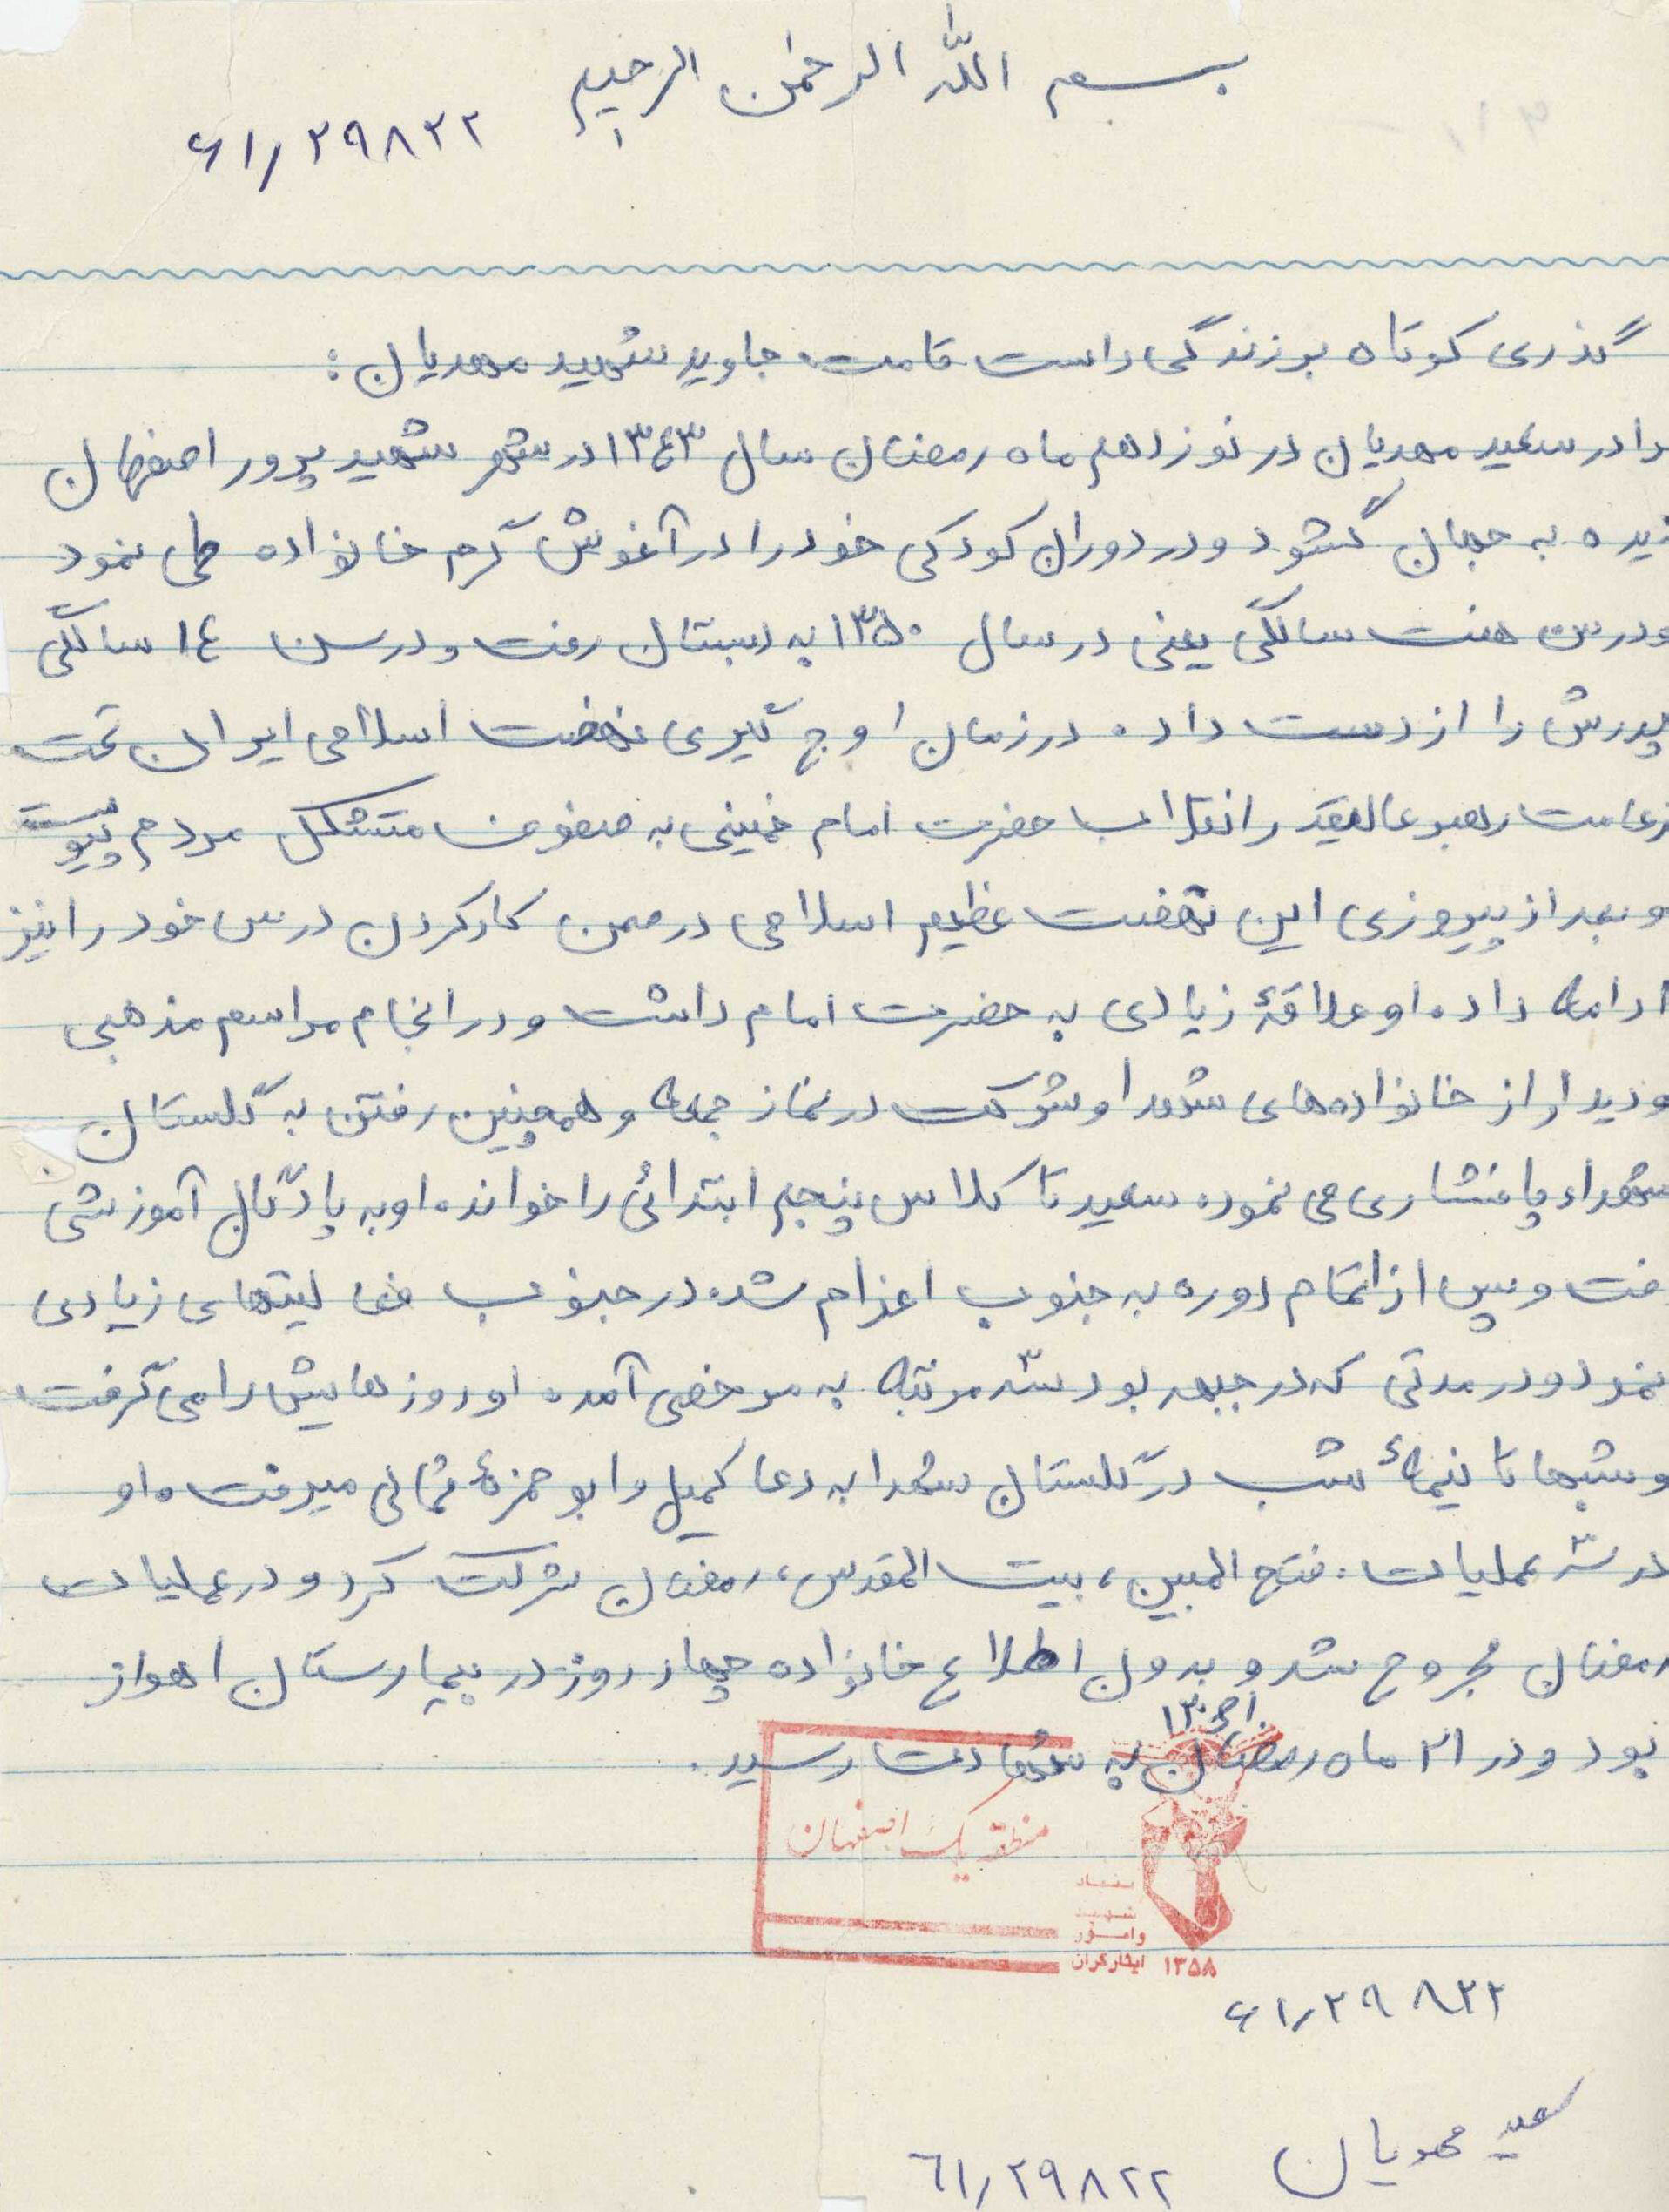 بسم الله الرحمن الرحیم
۶۱/۲۹۸۲۲
گذری کوتاه بر زندگی راست قامت جاوید شهید مهدیان:
برادر سعید مهدیان در نوزدهم ماه رمضان سال ۱۳۴۳ در شهر شهید پرور اصفهان
دیده به جهان گشود و در دوران کودکی خود را در آغوش گرم خانواده طی نمود
و در سن هفت سالگی یعنی در سال ۱۳۵۰ به دبستان رفت و در سن ۱۴ سالگی
پدرش را از دست داد. در زمان اوج گیری نهضت اسلامی ایران تحت
زعامت رهبر عالیقدر انقلاب حضرت امام خمینی به صفوف متشکل مردم پیوست
و بعد از پیروزی این نهضت عظیم اسلامی در ضمن کار کردن درس خود را نیز
ادامه داد. او علاقهٔ زیادی به حضرت امام داشت و در انجام مراسم مذهبی
و دیدار از خانواده‌های شهدا و شرکت در نماز جمعه و همچنین رفتن به گلستان
شهداء پا فشاری می نمود. سعید تا کلاس پنجم ابتدائی را خوانده. او به پادگان آموزشی
رفت و پس از اتمام دوره به جنوب اعزام شد. در جنوب فعالیتهای زیادی
نمود و در مدتی که در جبهه بود سه مرتبه به مرخصی آمد. او روزهایش را می گرفت
و شبها تا نیمهٔ شب در گلستان شهدا به دعا کمیل و ابو حمزهٔ ثمالی میرفت. او
در سه عملیات. فتح المبین، بیت المقدس، رمضان شرکت کرد و در عملیات
رمضان مجروح شد و بدون اطلاع خانواده چهار روز در بیمارستان اهواز
بود و در ۲۱ ماه رمضان به شهادت رسید.
منطقه یک اصفهان
بنیاد
شهید
وامور
ایثارگران
۱۳۵۸
۶۱/۲۹۸۲۲
سعید مهدیان ۶۱/۲۹۸۲۲